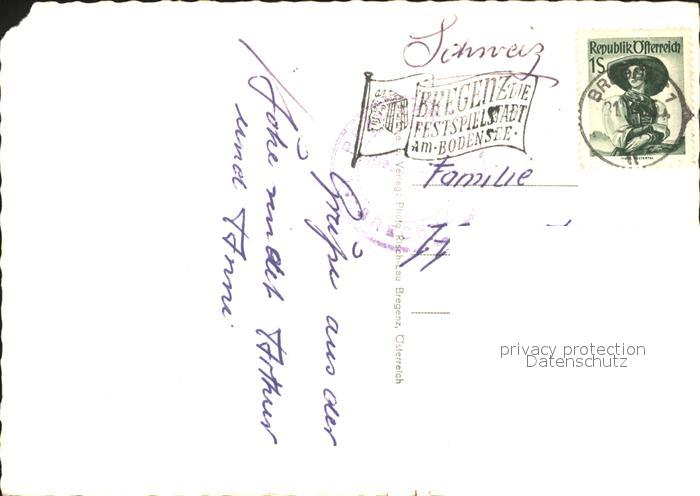 Schweiz
Republik Österreich
1S
BREGENZ DIE
FESTSPIELSTADT
AM · BODENSEE ·
Familie
Grüße aus der
Höhe sendet Arthur
und Anni.
Verlag: Photo Risch-Lau Bregenz, Österreich
privacy protection
Datenschutz